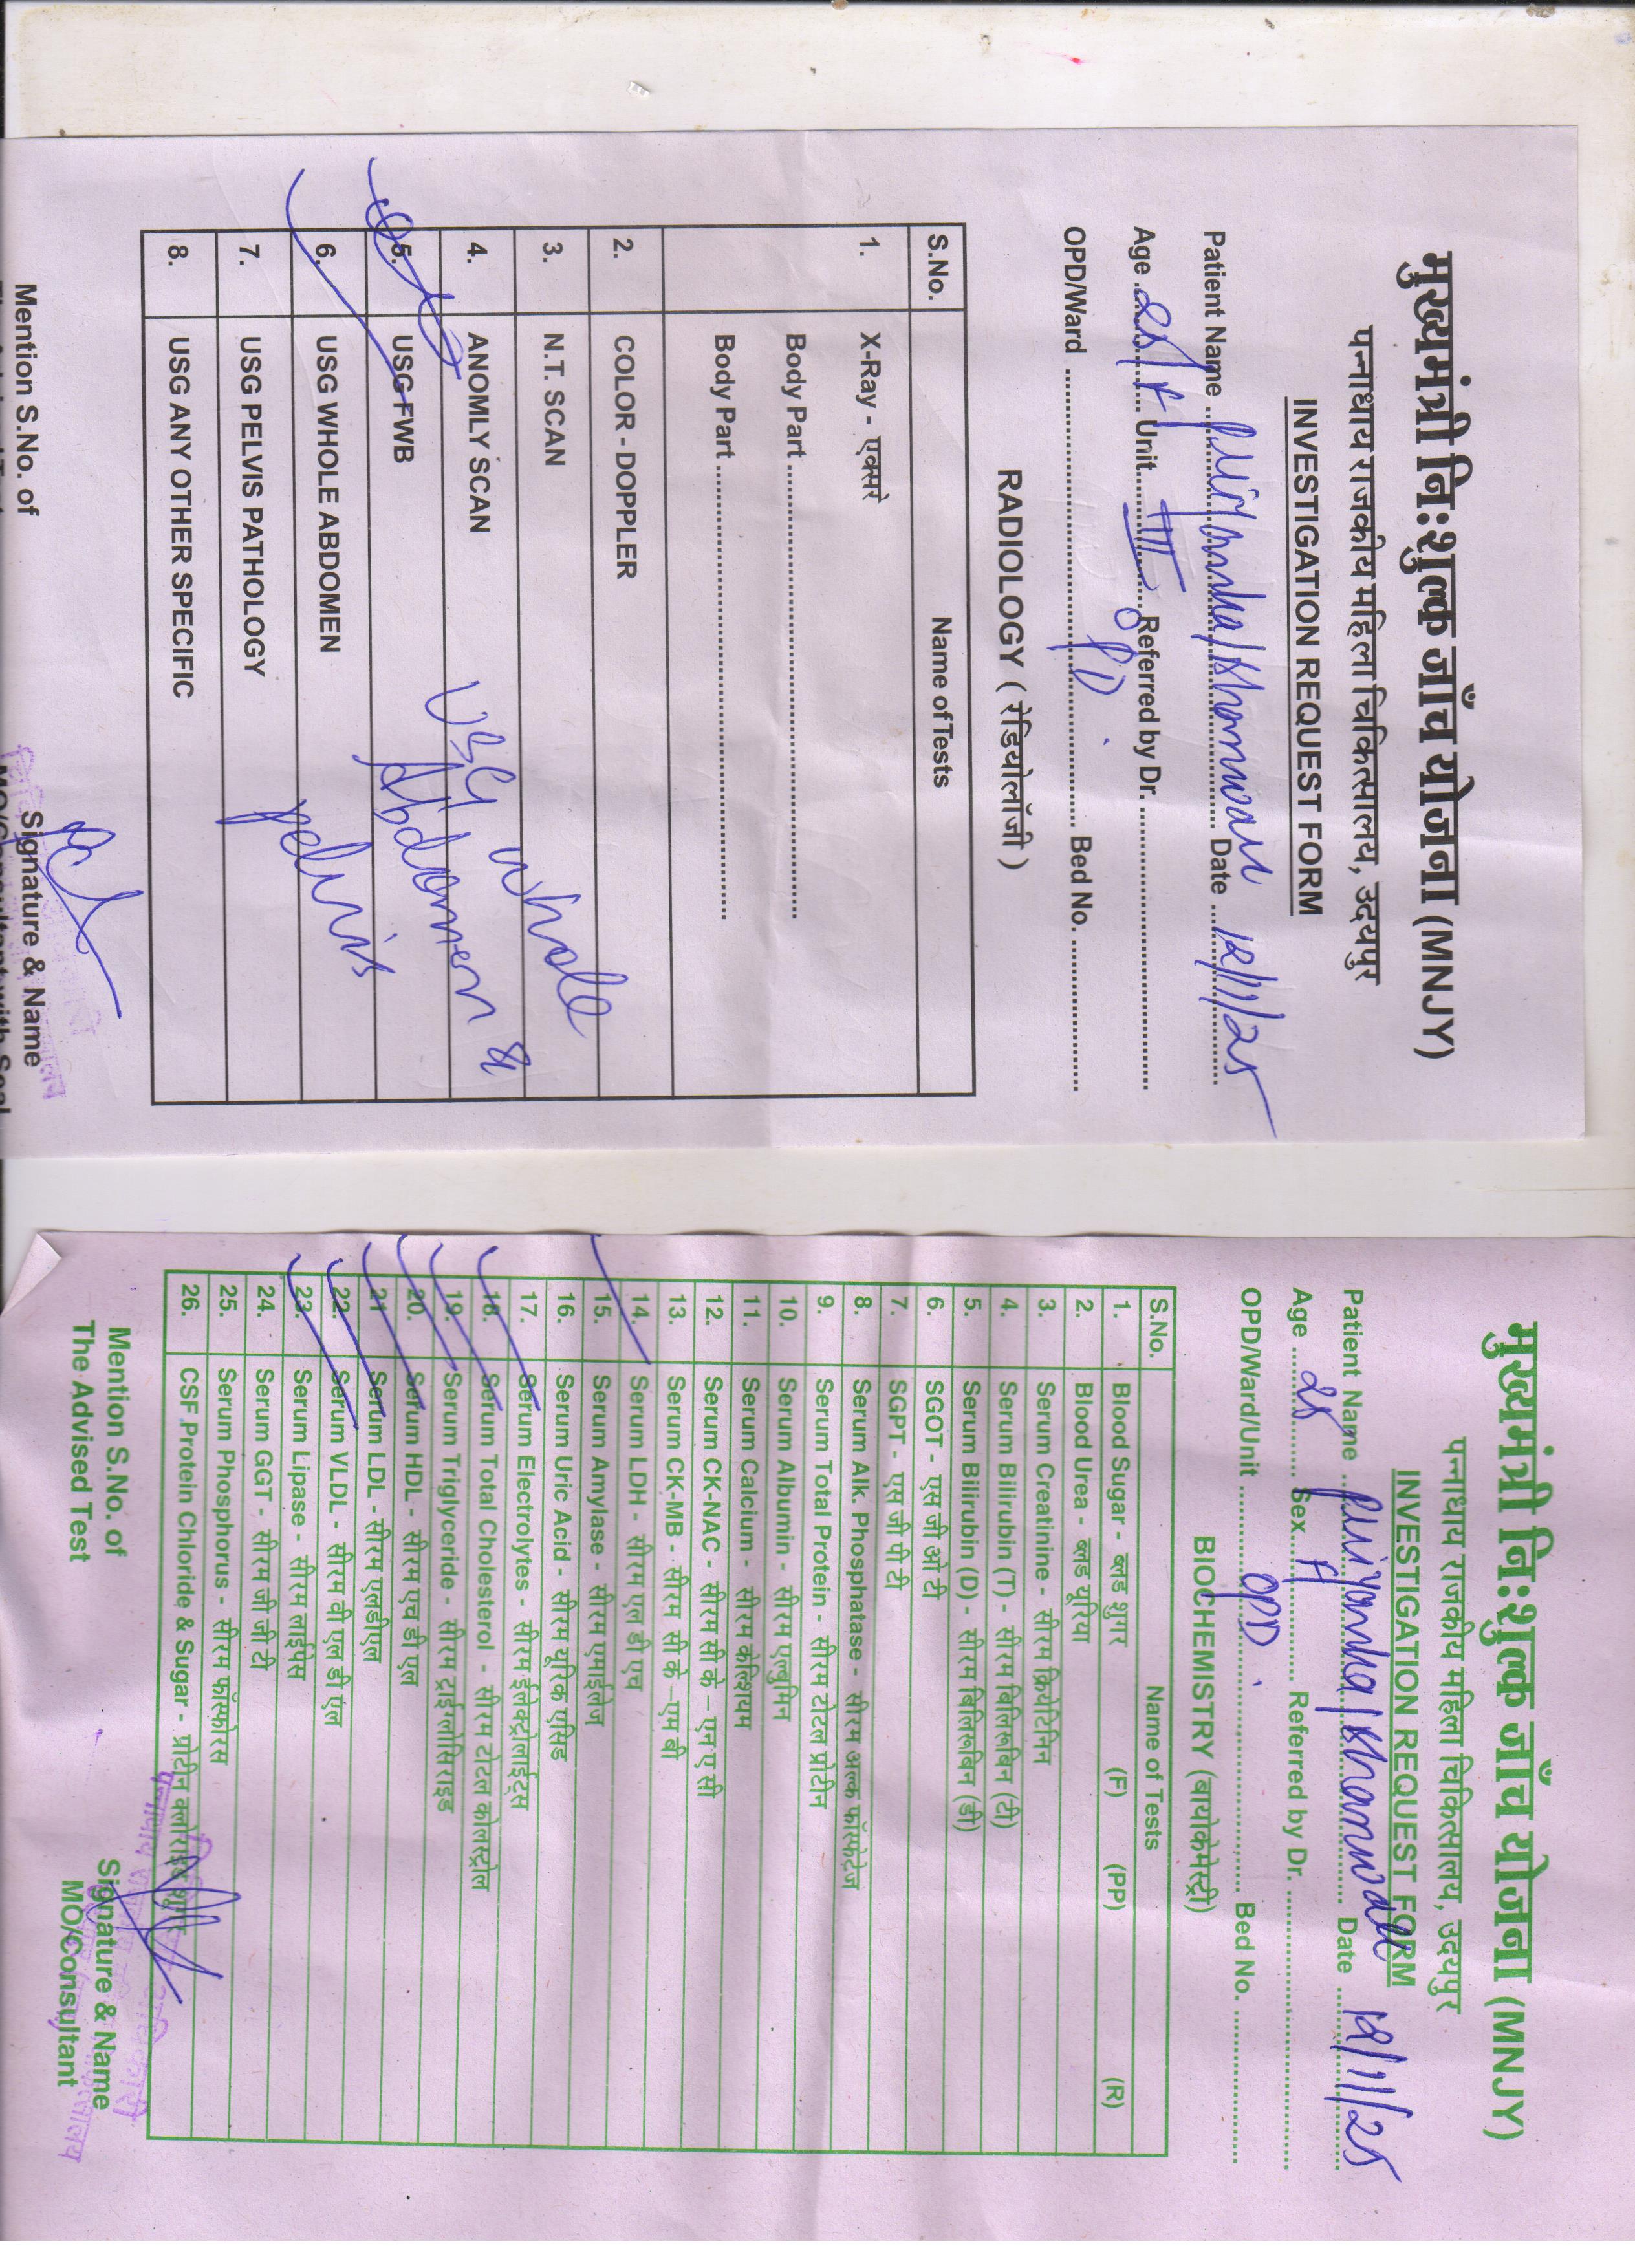 मुख्यमंत्री नि:शुल्क जाँच योजना (MNJY)
पन्नाधाय राजकीय महिला चिकित्सालय, उदयपुर
INVESTIGATION REQUEST FORM
Patient Name Date 12/11/25
Age Unit. III Referred by Dr.
OPD/Ward OPD Bed No.
RADIOLOGY ( रेडियोलॉजी )
S.No. Name of Tests
1. X-Ray - एक्सरे
Body Part
Body Part
2. COLOR - DOPPLER
3. N.T. SCAN
4. ANOMLY SCAN
5. USG FWB
6. USG WHOLE ABDOMEN
7. USG PELVIS PATHOLOGY
8. USG ANY OTHER SPECIFIC
USG whole
Abdomen &
pelvis
Mention S.No. of
Signature & Name
मुख्यमंत्री नि:शुल्क जाँच योजना (MNJY)
पन्नाधाय राजकीय महिला चिकित्सालय, उदयपुर
INVESTIGATION REQUEST FORM
Patient Name Priyanka / Date 12/11/25
Age Sex F Referred by Dr.
OPD/Ward/Unit OPD Bed No.
BIOCHEMISTRY (बायोकेमेस्ट्री)
S.No. Name of Tests
1. Blood Sugar - ब्लड शुगर (F) (PP) (R)
2. Blood Urea - ब्लड यूरिया
3. Serum Creatinine - सीरम क्रियेटिनिन
4. Serum Bilirubin (T) - सीरम बिलिरूबिन (टी)
5. Serum Bilirubin (D) - सीरम बिलिरूबिन (डी)
6. SGOT - एस जी ओ टी
7. SGPT - एस जी पी टी
8. Serum Alk. Phosphatase - सीरम अल्क फॉस्फेटेज
9. Serum Total Protein - सीरम टोटल प्रोटीन
10. Serum Albumin - सीरम एल्बुमिन
11. Serum Calcium - सीरम केल्शियम
12. Serum CK-NAC - सीरम सी के – एन ए सी
13. Serum CK-MB - सीरम सी के –एम बी
14. Serum LDH - सीरम एल डी एच
15. Serum Amylase - सीरम एमाईलेज
16. Serum Uric Acid - सीरम यूरिक एसिड
17. Serum Electrolytes - सीरम ईलेक्ट्रोलाईट्स
18. Serum Total Cholesterol - सीरम टोटल कोलस्ट्रोल
19. Serum Triglyceride - सीरम ट्राईग्लोसिराइड
20. Serum HDL - सीरम एच डी एल
21. Serum LDL - सीरम एलडीएल
22. Serum VLDL - सीरम वी एल डी एल
23. Serum Lipase - सीरम लाईपेस
24. Serum GGT - सीरम जी जी टी
25. Serum Phosphorus - सीरम फॉस्फोरस
26. CSF Protein Chloride & Sugar - प्रोटीन क्लोराइड शुगर
Mention S.No. of
The Advised Test
Signature & Name
MO/Consultant